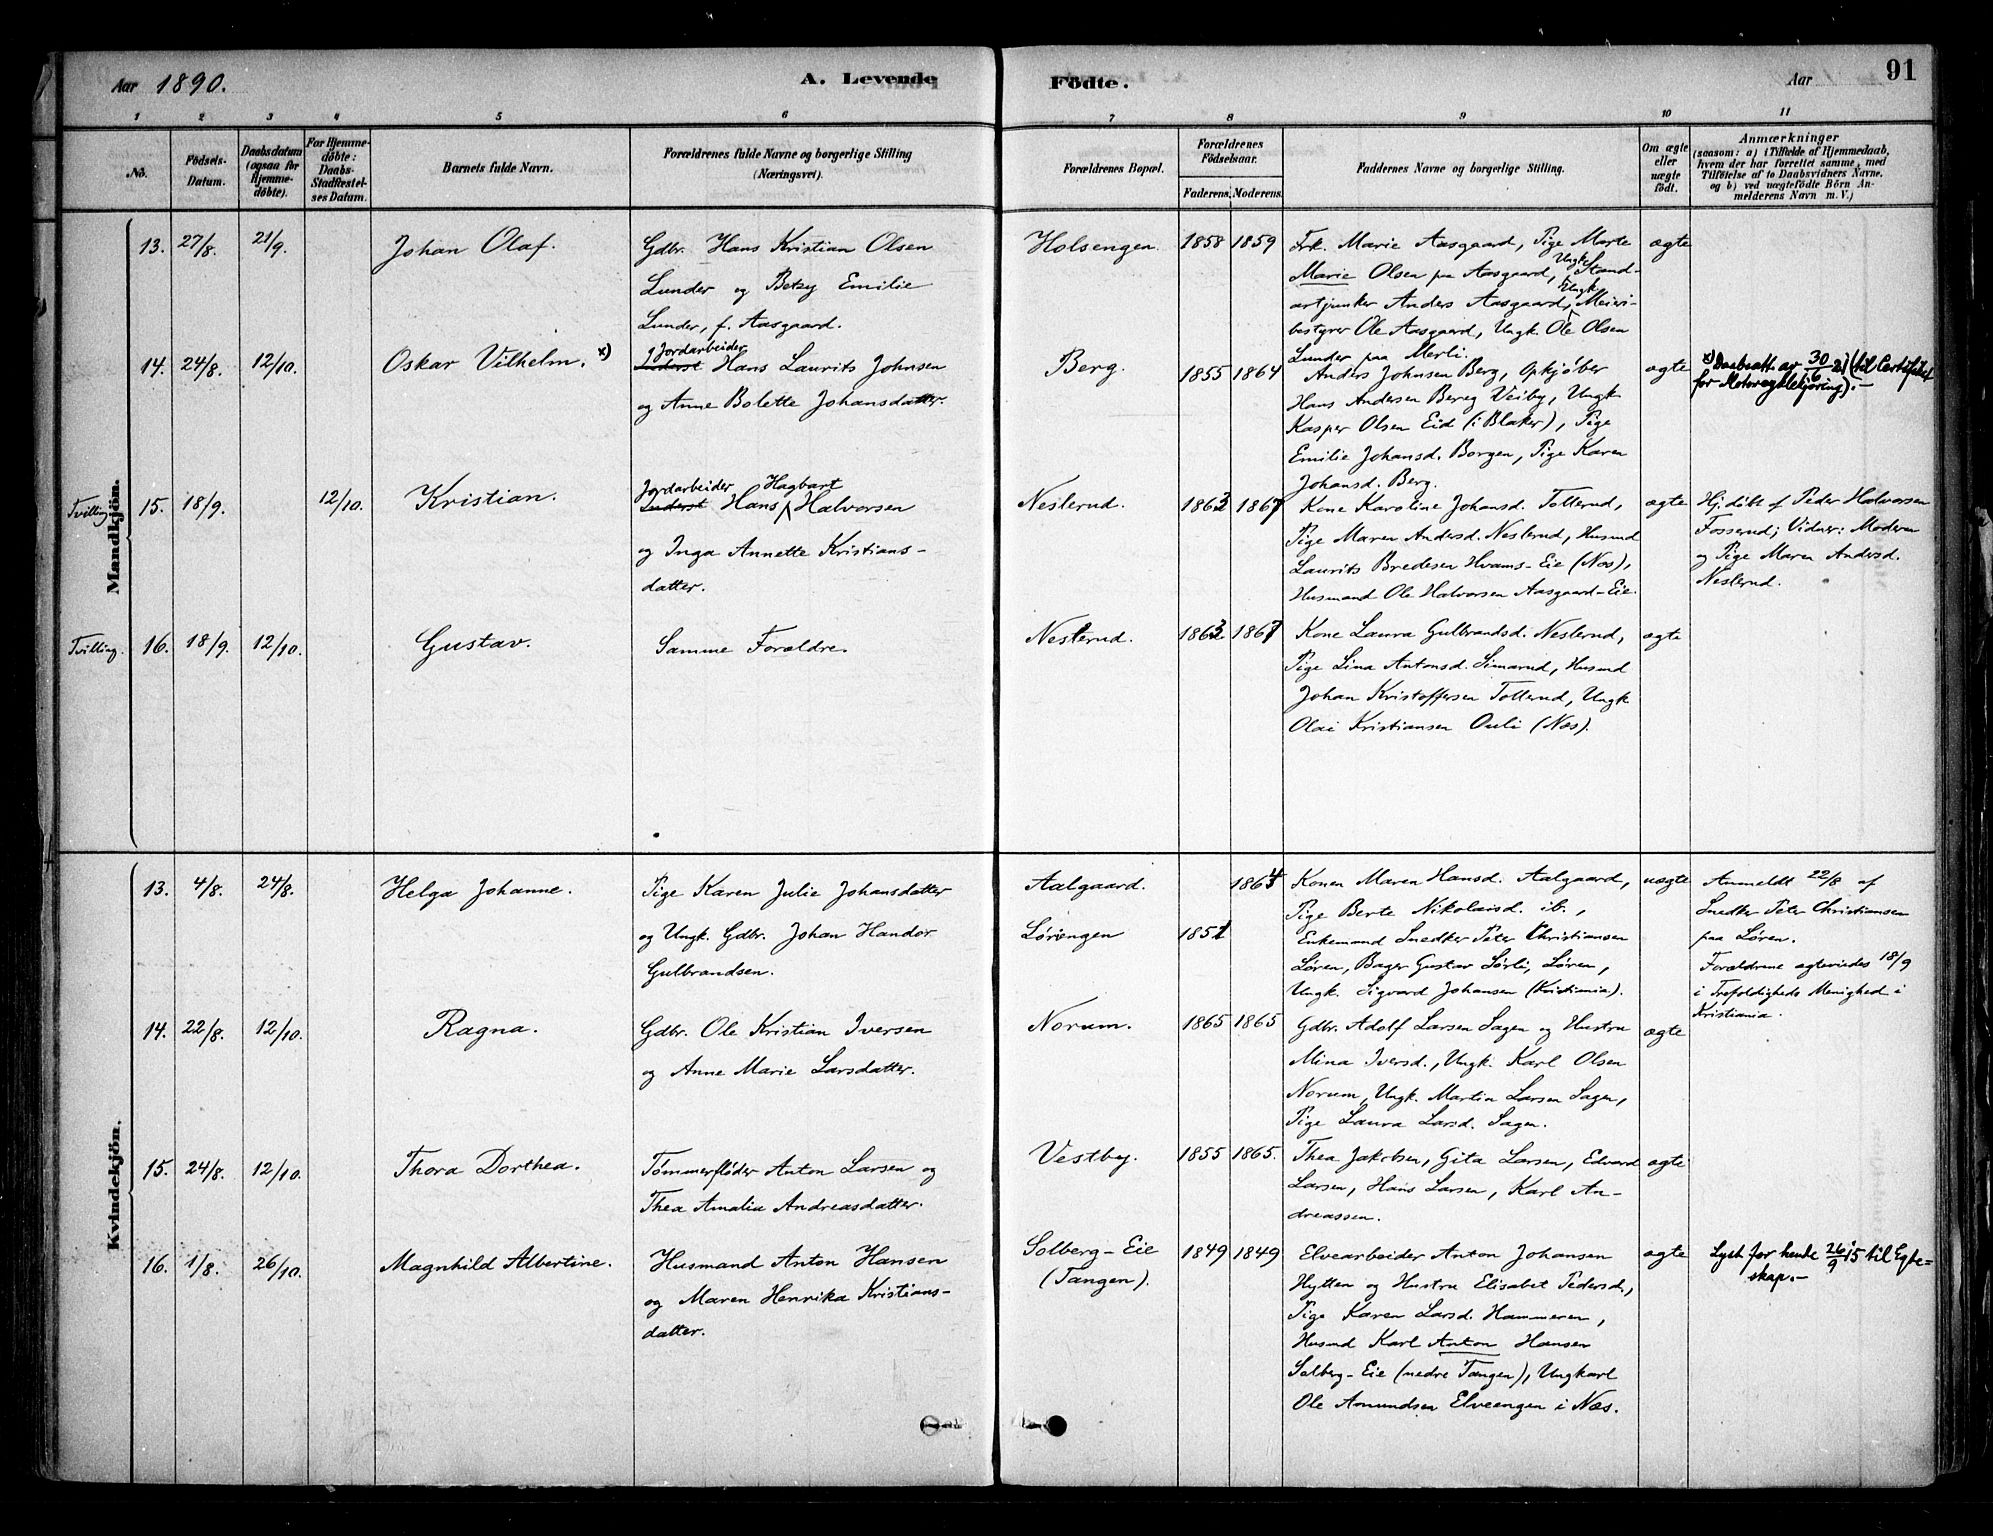 Aar 1890.
A. Levende
Födte.
Aar
91
1 2 3 4 5 6 7 8 9 10 11
No.
Födsels-Datum.
Daabsdatum (ogsaa for Hjemme-döbte).
For Hjemme-döbte: Daabs-Stadfæstel-ses Datum.
Barnets fulde Navn.
Forældrenes fulde Navne og borgerlige Stilling (Næringsvei).
Forældrenes Bopæl.
Forældrenes Födselsaar.
Faderens. Moderens.
Faddernes Navne og borgerlige Stilling.
Om ægte eller uægte födt.
Anmærkninger
(saasom: a) i Tilfælde af Hjemmedaab,
hvem der har forrettet samme, med
Tilföielse af to Daabsvidners Navne,
og b) ved uægtefödte Börn An-
melderens Navn m. V.)
Mandkjön.
13. 27/8. 21/9.
Johan Olaf.
Gdbr. Hans Kristian Olsen
Lunder og Betzy Emilie
Lunder, f. Aasgaard.
Holsengen. 1858 1859
Frk. Marie Aasgaard, Pige Marte
Marie Olsen paa Aasgaard, Ungk. Stand-
artjunker Anders Aasgaard, Ungk. Meieri-
bestyrer Ole Aasgaard, Ungk. Ole Olsen
Lunder paa Merli.
ægte
14. 24/8. 12/10.
Oskar Vilhelm. x)
Jordarbeider
Inderst Hans Laurits Johnsen
og Anne Bolette Johansdatter.
Berg. 1855 1864
Anders Johnsen Berg, Opkjøber
Hans Andersen Berg Veiby, Ungk.
Kasper Olsen Eid (i Blaker), Pige
Emilie Johansd. Borgen, Pige Karen
Johansd. Berg.
ægte
x) Daabsatt. av 30/6 21 (til Certifikat
for Motorcyklekjøring).-
Tvilling 15. 18/9. 12/10.
Kristian.
Jordarbeider Hagbart
Inderst Hans Halvorsen
og Inga Annette Kristians-
datter.
Neslerud. 1863 1867
Kone Karoline Johansd. Totterud,
Pige Maren Andersd. Neslerud, Husmd
Laurits Bredesen Hvams-Eie (Næs),
Husmand Ole Halvorsen Aasgaard-Eie.
ægte
Hj. døbt af Peder Halvorsen
Fosserud; Vidner: Moderen
og Pige Maren Andersd.
Neslerud.
Tvilling. 16. 18/9. 12/10.
Gustav.
Samme Forældre.
Neslerud. 1863 1867
Kone Laura Gulbrandsd. Neslerud,
Pige Lina Antonsd. Simarud, Husmd
Johan Kristoffersen Totterud, Ungk.
Olai Kristiansen Ouli (Næs).
ægte
Kvindekjön.
13. 4/8. 24/8.
Helga Johanne.
Pige Karen Julie Johansdatter
og Ungk. Gdbr. Johan Handor
Gulbrandsen.
Aalgaard. 1864
Lørengen 1851
Konen Maren Hansd. Aalgaard,
Pige Berte Nikolaisd. ib.,
Enkemand Snedker Peter Christiansen
Løren, Bager Gustav Sørli, Løren,
Ungk. Sigvard Johansen (Kristiania).
uægte
Anmeldt 22/8 af
Snedker Peter Christiansen
paa Løren.
Forældrene ægteviedes 18/9
i Trefoldigheds Menighed i
Kristiania.
14. 22/8. 12/10.
Ragna.
Gdbr. Ole Kristian Iversen
og Anne Marie Larsdatter.
Norum. 1865 1865
Gdbr. Adolf Larsen Sagen og Hustru
Mina Iversd., Ungk. Karl Olsen
Norum, Ungk. Martin Larsen Sagen,
Pige Laura Larsd. Sagen.
ægte
15. 24/8. 12/10.
Thora Dorthea.
Tømmerfløder Anton Larsen og
Thea Amalia Andreasdatter.
Vestby. 1855 1865.
Thea Jakobsen, Gita Larsen, Edvard
Larsen, Hans Larsen, Karl An-
dreassen.
ægte
16. 1/8. 26/10.
Magnhild Albertine.
Husmand Anton Hansen
og Maren Henrika Kristians-
datter.
Solberg-Eie
(Tangen).
1849 1849
Elvearbeider Anton Johansen
Hytten og Hustru Elisabet Pedersd.,
Pige Karen Larsd. Hammeren,
Husmd Karl Anton Hansen
Solberg-Eie (nedre Tangen), Ungkarl
Ole Amundsen Elveengen i Næs.
ægte
Lyst for hende 26/9 15 til Egte-
skap.-